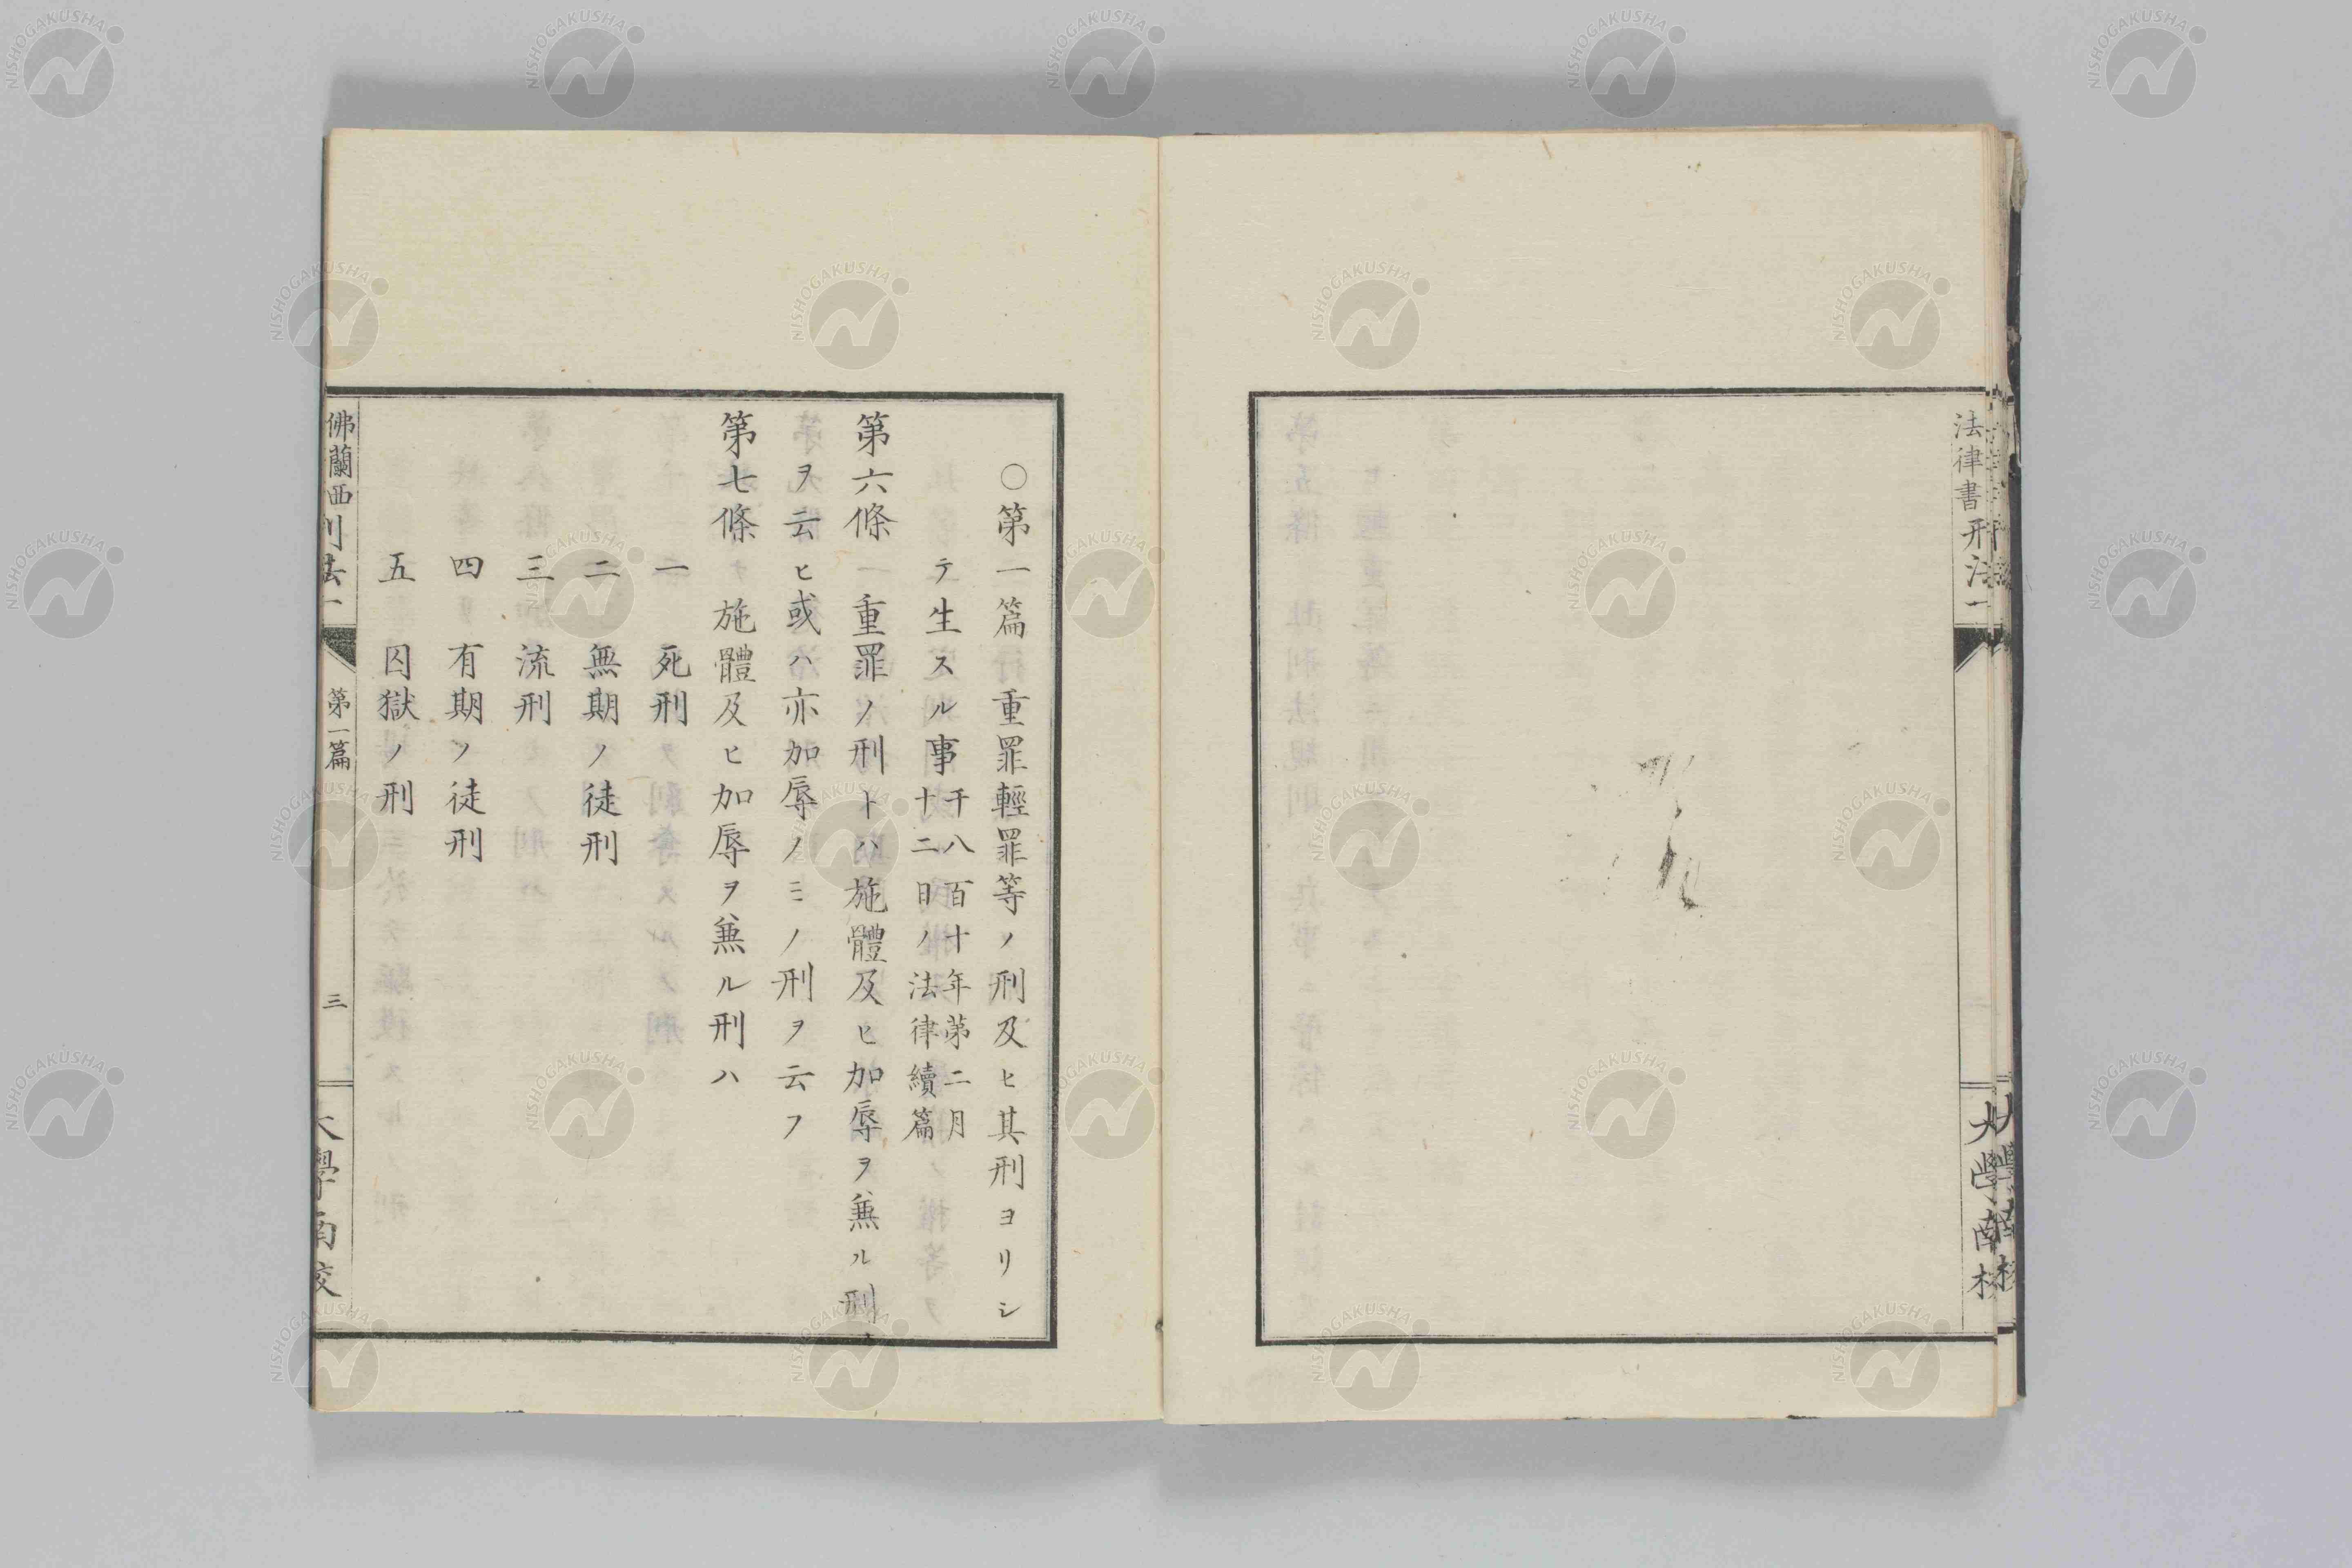 法律書
刑法一
大學南校
○第一篇 重罪輕罪等ノ刑及ヒ其刑ヨリシ
テ生スル事 千八百十年第二月
十二日ノ法律續篇
第六條 重罪ノ刑トハ施體及ヒ加辱ヲ兼ル刑
ヲ云ヒ或ハ亦加辱ノミノ刑ヲ云フ
第七條 施體及ヒ加辱ヲ兼ル刑ハ
一 死刑
二 無期ノ徒刑
三 流刑
四 有期ノ徒刑
五 囚獄ノ刑
佛蘭西刑法一 第一篇 三 大學南校
NISHOGAKUSHA